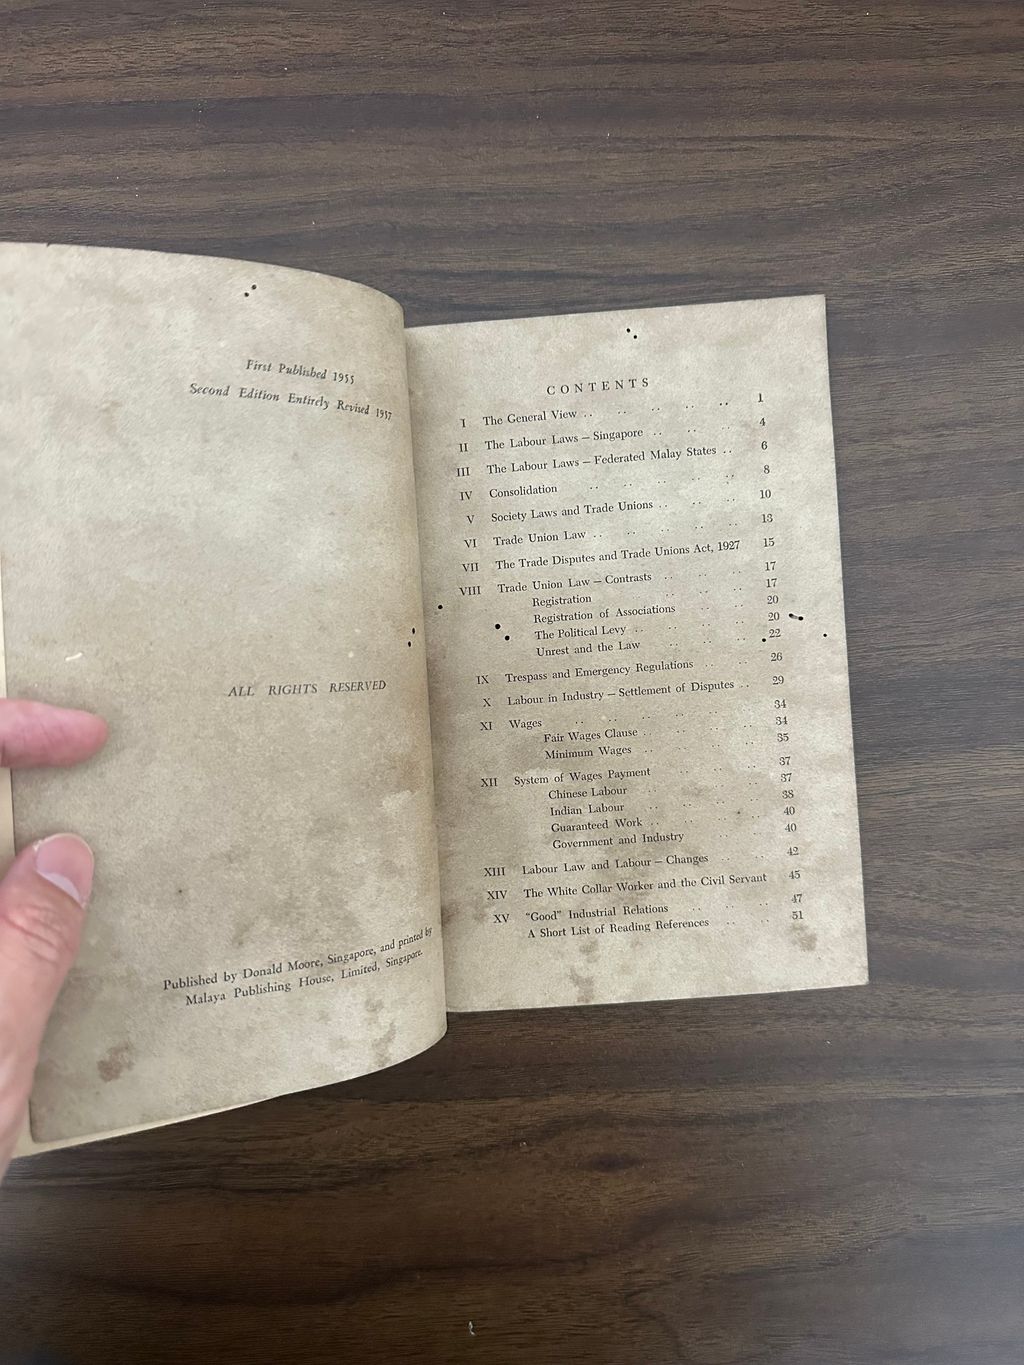 First Published 1955
Second Edition Entirely Revised 1957
ALL RIGHTS RESERVED
Published by Donald Moore, Singapore, and printed by
Malaya Publishing House, Limited, Singapore.
CONTENTS
I The General View .. .. .. .. .. 1
II The Labour Laws — Singapore .. .. .. 4
III The Labour Laws — Federated Malay States .. 6
IV Consolidation .. .. .. .. .. 8
V Society Laws and Trade Unions .. .. .. 10
VI Trade Union Law .. .. .. .. .. 13
VII The Trade Disputes and Trade Unions Act, 1927 15
VIII Trade Union Law — Contrasts .. .. .. 17
Registration .. .. .. 17
Registration of Associations .. .. 20
The Political Levy .. .. .. 20
Unrest and the Law .. .. .. 22
IX Trespass and Emergency Regulations .. .. 26
X Labour in Industry — Settlement of Disputes .. 29
XI Wages .. .. .. .. .. 34
Fair Wages Clause .. .. .. 34
Minimum Wages .. .. .. 35
XII System of Wages Payment .. .. .. 37
Chinese Labour .. .. .. 37
Indian Labour .. .. .. 38
Guaranteed Work .. .. .. 40
Government and Industry .. .. 40
XIII Labour Law and Labour — Changes .. .. 42
XIV The White Collar Worker and the Civil Servant 45
XV "Good" Industrial Relations .. .. .. 47
A Short List of Reading References .. .. 51